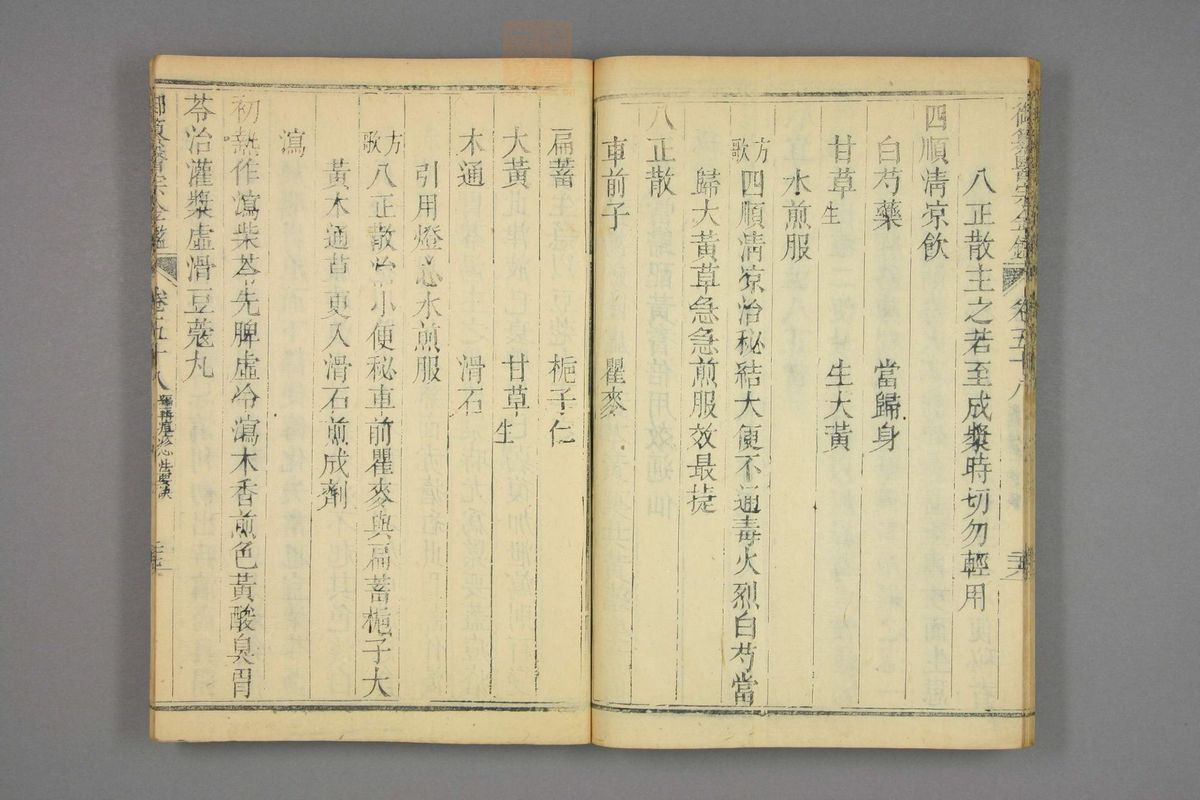 御纂醫宗金鑑 卷五十八
八正散主之若至成漿時切勿輕用
四順清凉飲
白芍藥 當歸身
甘草生 生大黃
水煎服
方歌 四順清凉治秘結大便不通毒火烈白芍當
歸大黃草急急煎服效最捷
八正散
車前子 瞿麥
扁蓄 梔子仁
大黃 甘草生
木通 滑石
引用燈心水煎服
方歌 八正散治小便秘車前瞿麥與扁蓄梔子大
黃木通草更入滑石煎成劑
瀉
初熱作瀉柴苓先脾虛冷瀉木香煎色黃酸臭胃
苓治灌漿虛滑豆蔻丸
御纂醫宗金鑑 卷五十八 編輯痘疹心法要訣